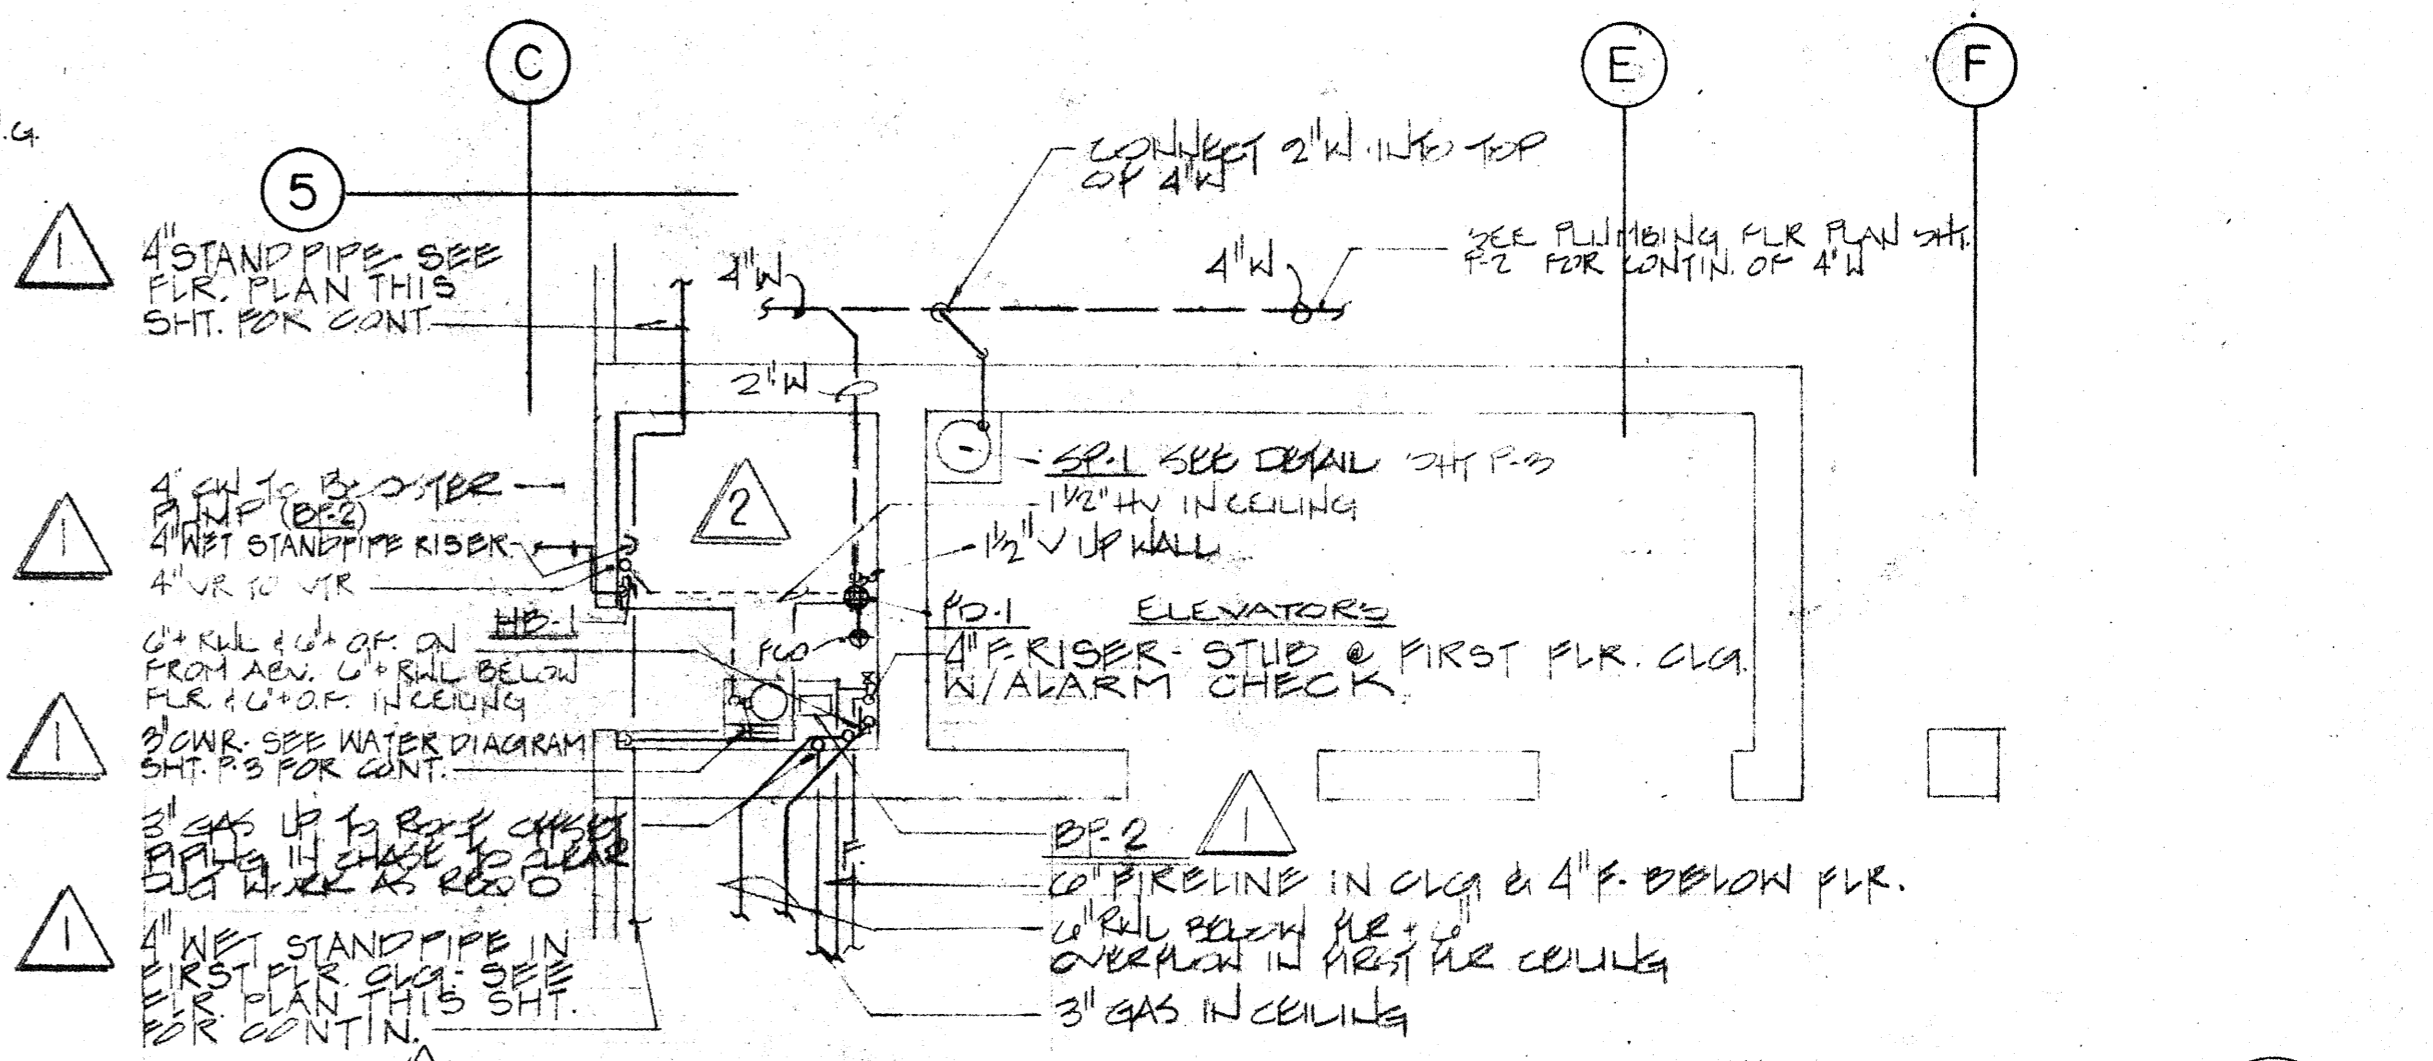 C
E
F
.G.
5
CONNECT 2"W INTO TOP
OF 4"W
1
4" STANDPIPE- SEE
FLR. PLAN THIS
SHT. FOR CONT.
4"W
4"W
SEE PLUMBING FLR PLAN SHT.
P-2 FOR CONTIN. OF 4"W
2"W
4" CW TO BOOSTER
PUMP (BP-2)
1
4" WET STANDPIPE RISER
4" VR TO VTR
2
SP-1 SEE DETAIL SHT P-3
1 1/2" HV IN CEILING
1 1/2" V UP WALL
HB-1
FD-1
ELEVATORS
FCO
4" F. RISER- STUB @ FIRST FLR. CLG.
W/ALARM CHECK
6"+ RWL & 6"+ O.F. DN
FROM ABV. 6"+ RWL BELOW
FLR. & 6"+ O.F. IN CEILING
1
3" CWR- SEE WATER DIAGRAM
SHT. P-3 FOR CONT.
3" GAS UP TO ROOF OFFSET
PIPING IN CHASE TO CLEAR
DUCT WORK AS REQ'D
1
4" WET STANDPIPE IN
FIRST FLR. CLG.- SEE
FLR. PLAN THIS SHT.
FOR CONTIN.
BP-2
1
F
6" FIRELINE IN CLG & 4" F. BELOW FLR.
6" RWL BELOW FLR + 6"
OVERFLOW IN FIRST FLR CEILING
3" GAS IN CEILING